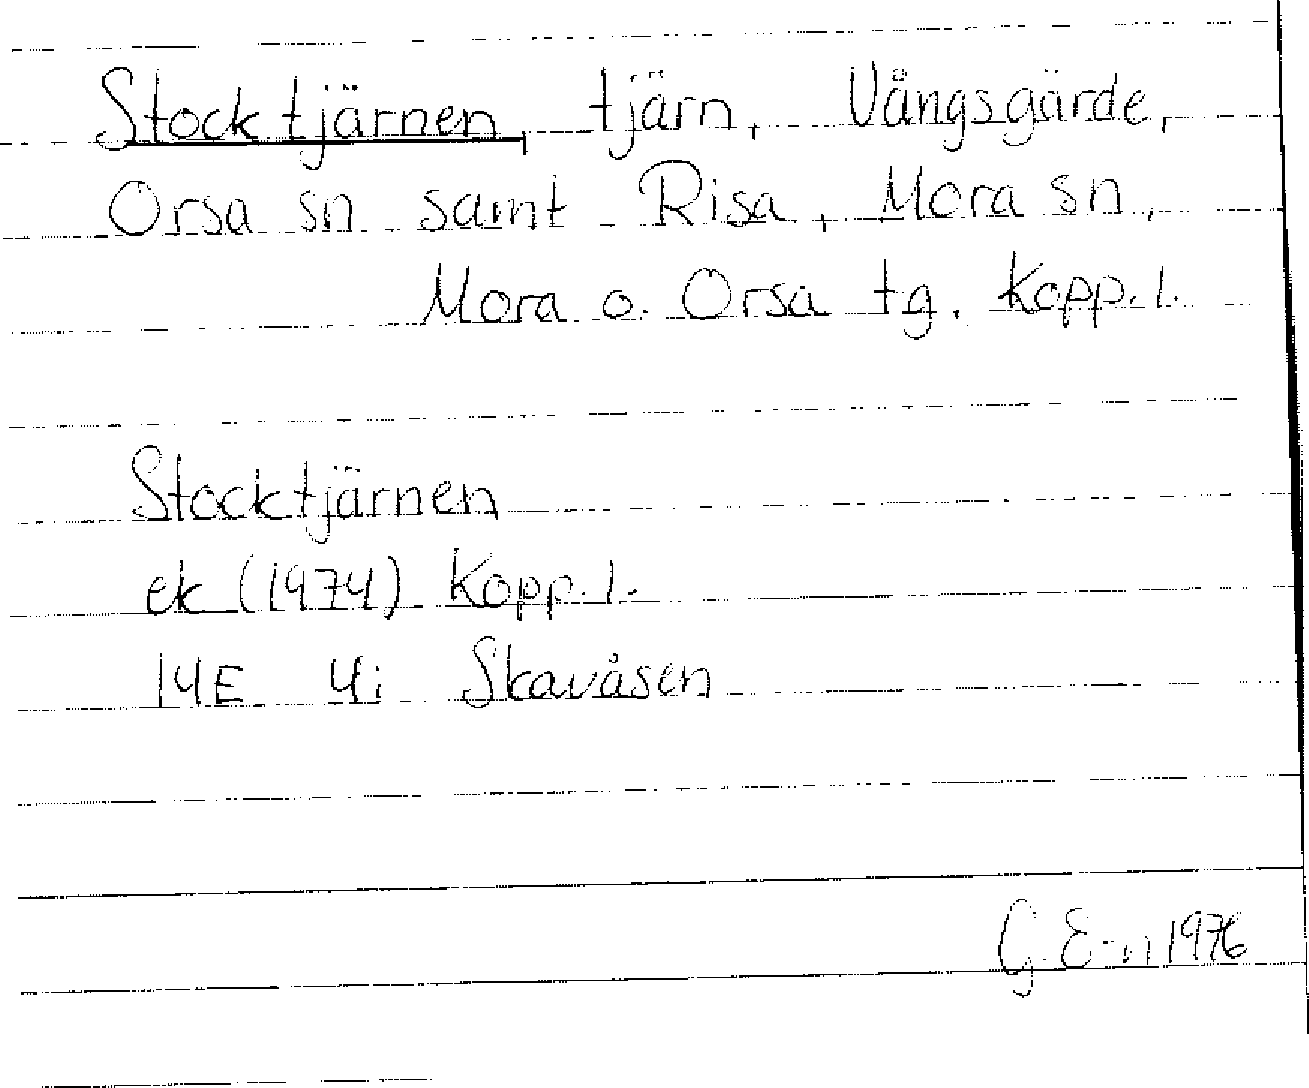 Stocktjärnen, tjärn, Vångsgärde,
Orsa sn samt Risa, Mora sn,
Mora o. Orsa tg. Kopp.l.
Stocktjärnen
ek (1974) Kopp.l.
14E 4i Skavåsen
G. E-n 1976